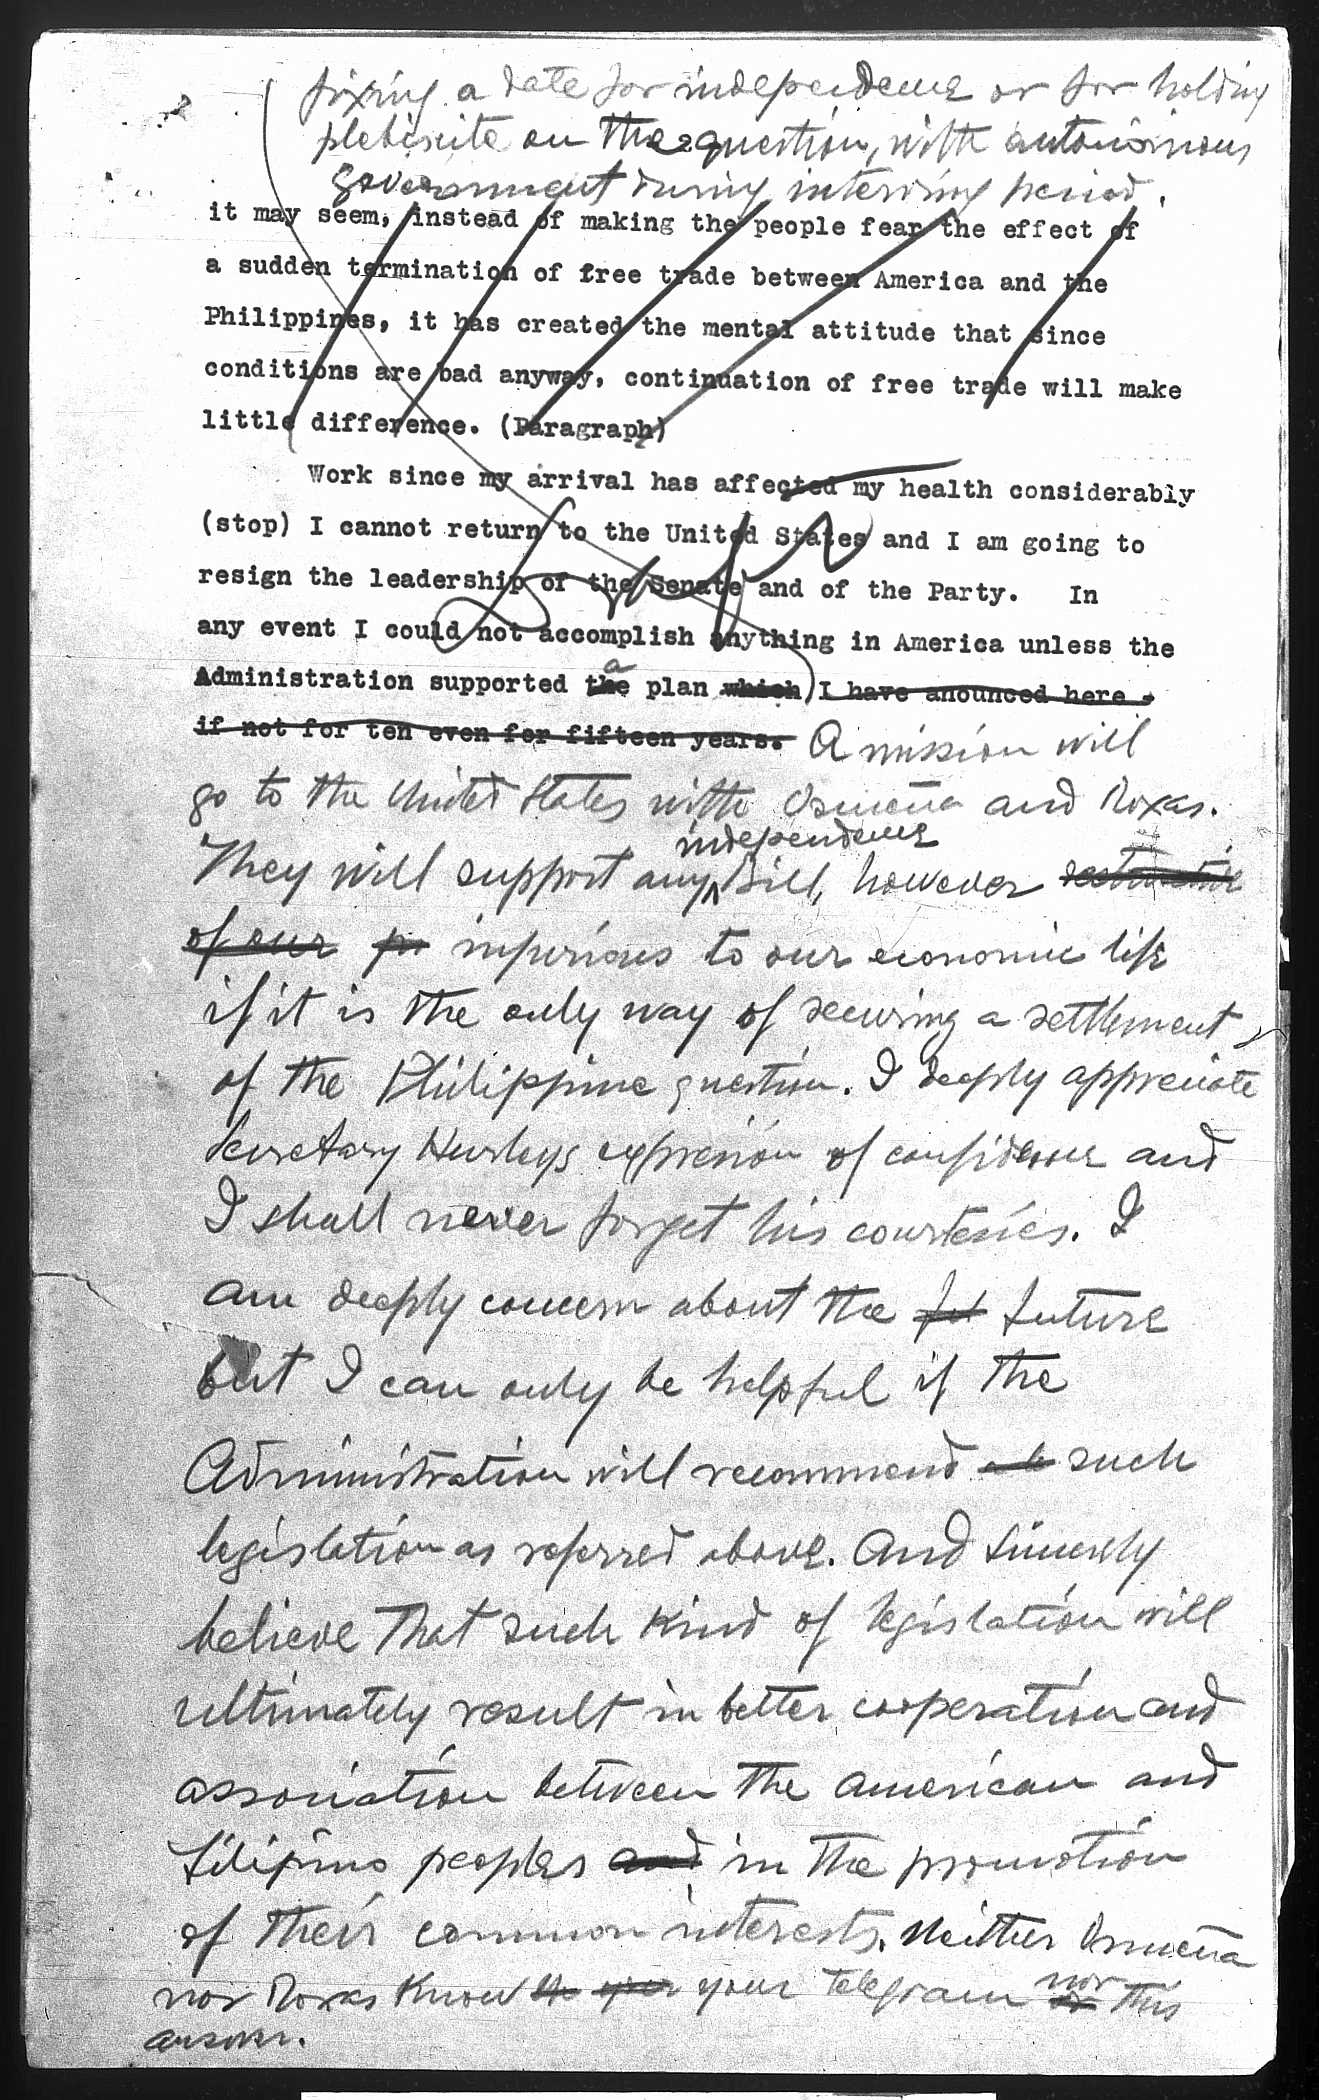 fixing a date for independence or for holding
plebiscite on the question, with autonomous
government during intervining period.
it may seem, instead of making the people fear the effect of
a sudden termination of free trade between America and the
Philippines, it has created the mental attitude that since
conditions are bad anyway, continuation of free trade will make
little difference. (Paragraph)
Work since my arrival has affected my health considerably
(stop) I cannot return to the United States and I am going to
resign the leadership of the Senate and of the Party. In
any event I could not accomplish anything in America unless the
a
Administration supported the plan which I have anounced here -
if not for ten even for fifteen years. A mission will
go to the United States with Osmeña and Roxas.
independence
They will support any Bill, however destructive
of our injurious to our economic life
if it is the only way of securing a settlement
of the Philippine question. I deeply appreciate
Secretary Hurleys expression of confidence and
I shall never forget his courtesies. I
am deeply concern about the fut future
but I can only be helpful if the
Administration will recommend such
legislation as referred above. And sincerely
believe that such kind of legislation will
ultimately result in better cooperation and
association between the american and
filipino peoples and in the promotion
of their common interests. Neither Osmeña
nor
nor Roxas know your telegram or this
answer.